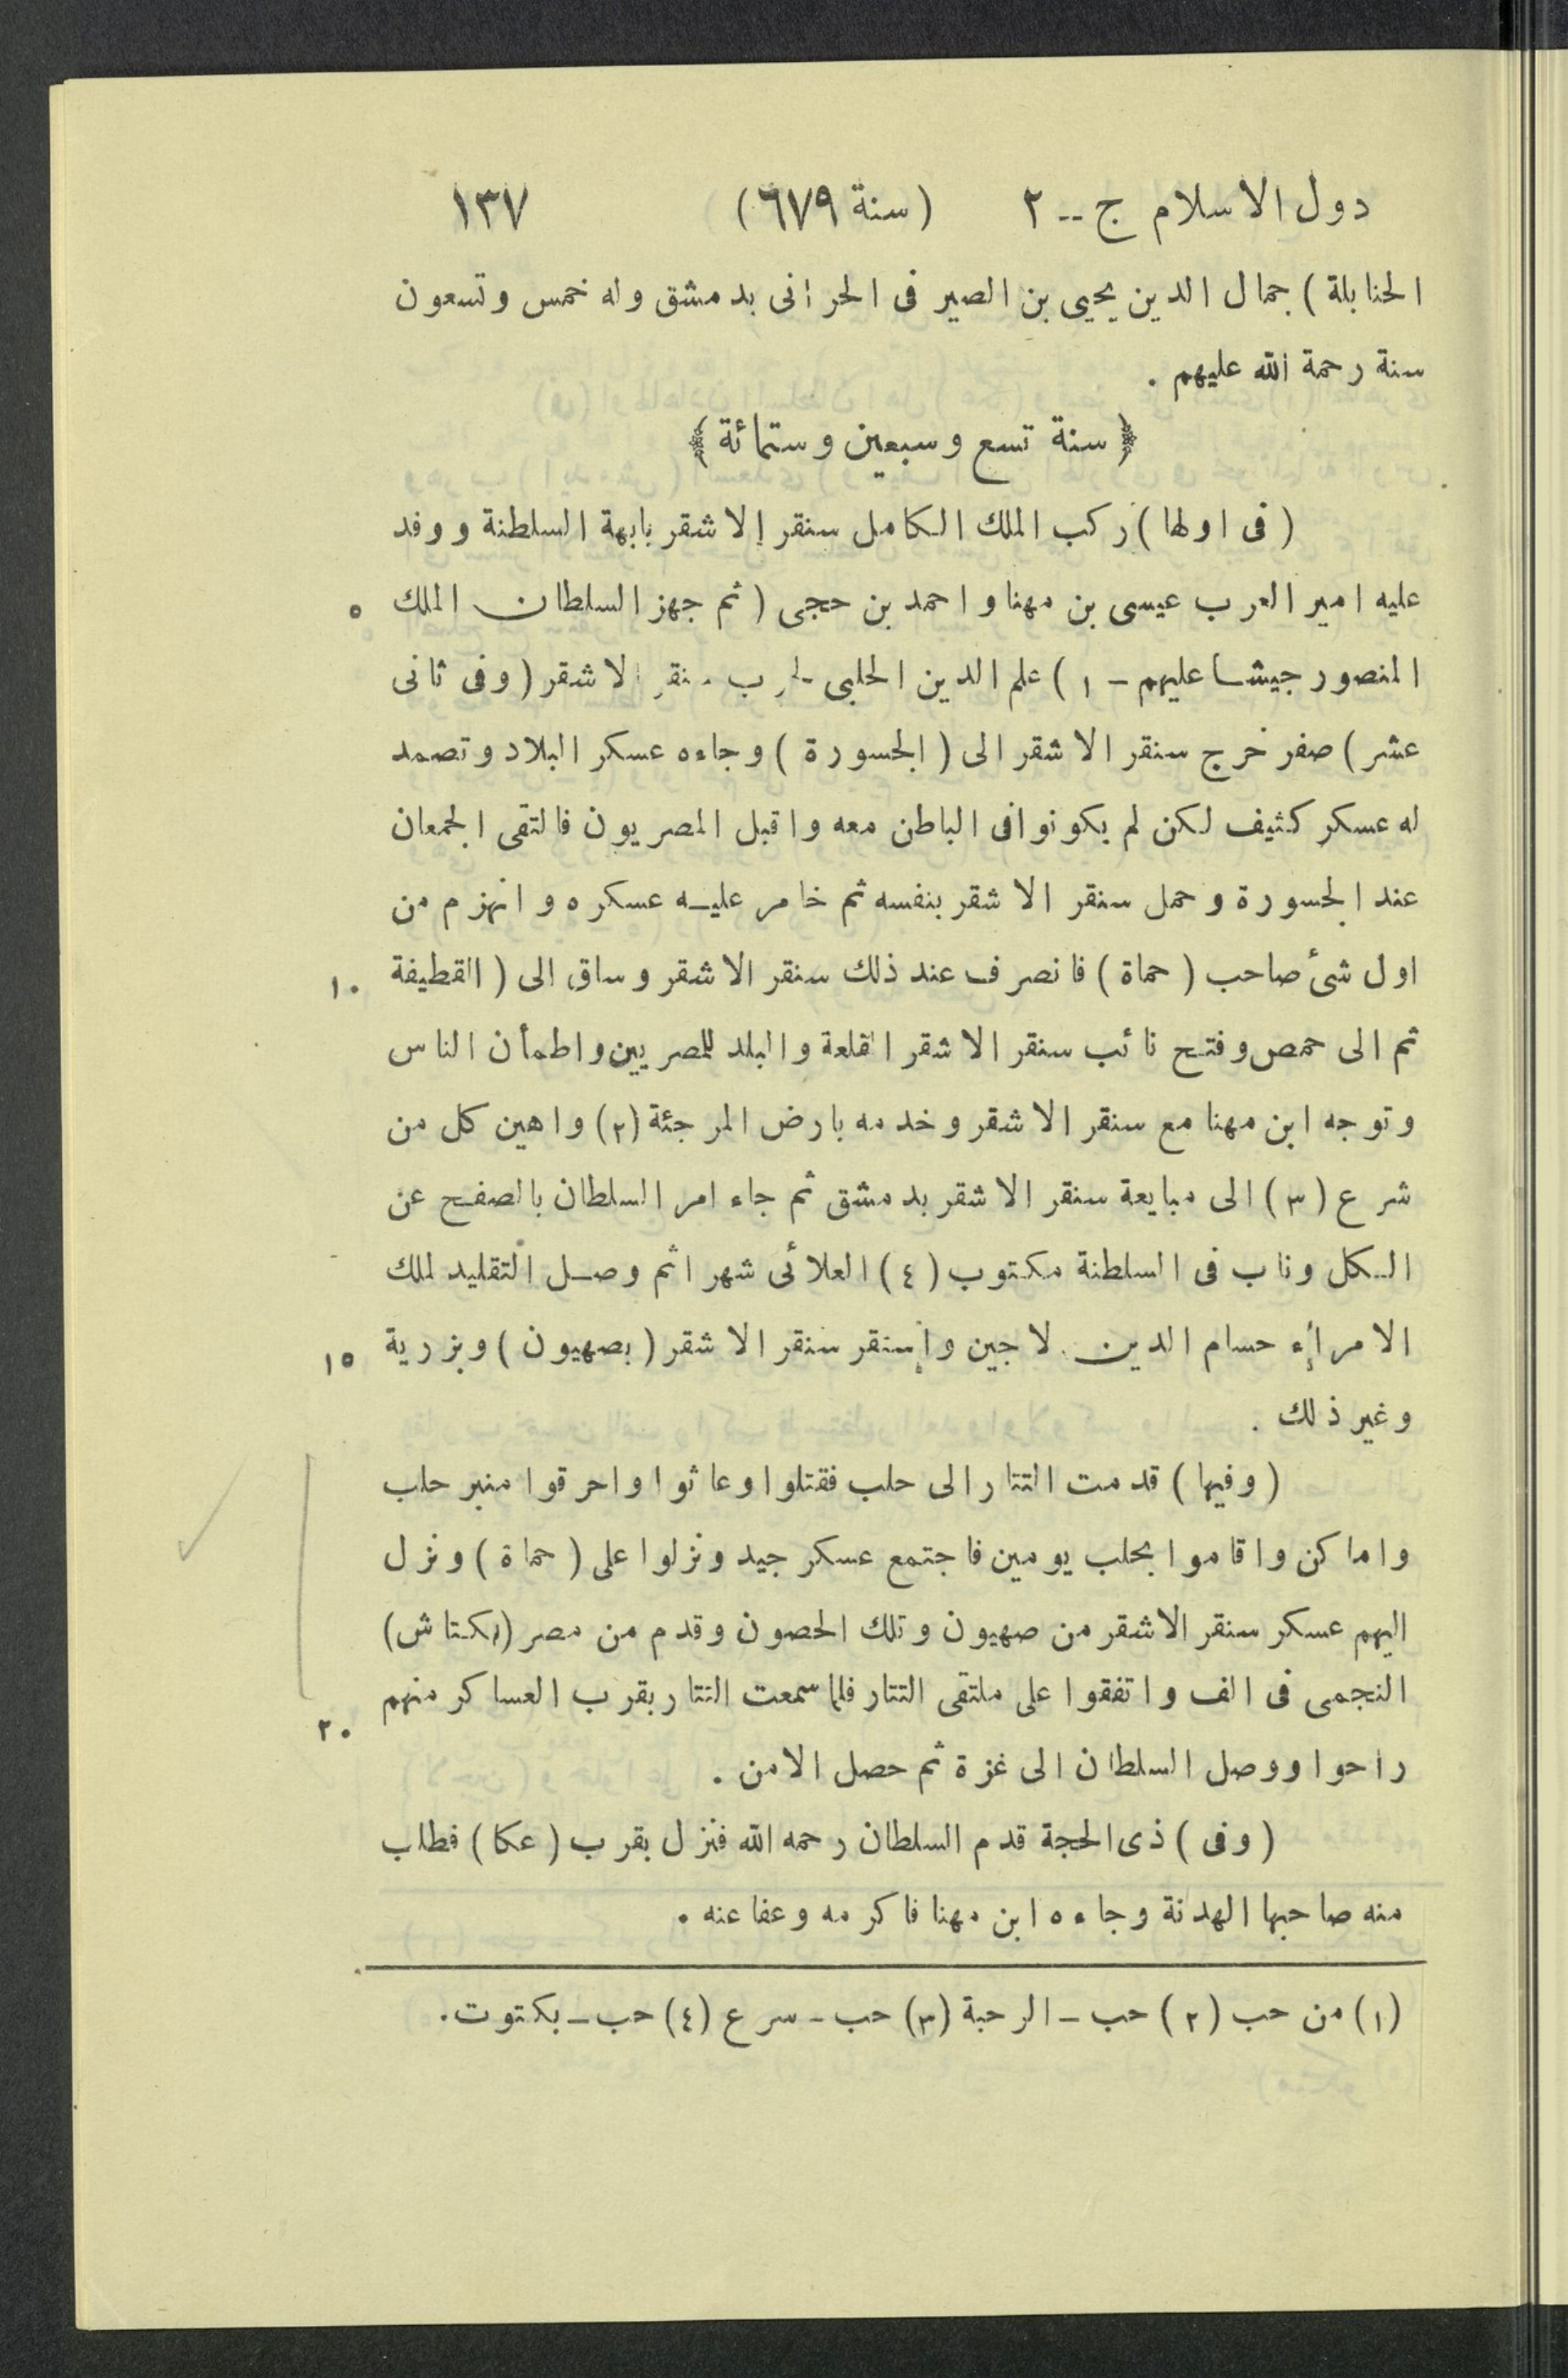 دول الاسلام ج -- ٢ (سنة ٦٧٩) ١٣٧
الحنابلة) جمال الدين يحيى بن الصير فى الحرانى بدمشق وله خمس وتسعون
سنة رحمة الله عليهم .
﴿ سنة تسع وسبعين وستمائة ﴾
(فى اولها) ركب الملك الكامل سنقر الاشقر بابهة السلطنة ووفد
عليه امير العرب عيسى بن مهنا واحمد بن حجى (ثم جهز السلطان الملك ٥
المنصور جيشا عليهم - ١) علم الدين الحلبى لحرب سنقر الاشقر (وفى ثانى
عشر) صفر خرج سنقر الاشقر الى (الجسورة) وجاءه عسكر البلاد وتصمد
له عسكر كثيف لكن لم يكونوا فى الباطن معه واقبل المصريون فالتقى الجمعان
عند الجسورة وحمل سنقر الاشقر بنفسه ثم خامر عليه عسكره وانهزم من
اول شىٔ صاحب (حماة) فانصرف عند ذلك سنقر الاشقر وساق الى (القطيفة ١٠
ثم الى حمص وفتح نائب سنقر الاشقر القلعة والبلد للمصريين واطمأن الناس
وتوجه ابن مهنا مع سنقر الاشقر وخدمه بارض المرجئة (٢) واهين كل من
شرع (٣) الى مبايعة سنقر الاشقر بدمشق ثم جاء امر السلطان بالصفح عن
الكل وناب فى السلطنة مكتوب (٤) العلائى شهرا ثم وصل التقليد لملك
الامراء حسام الدين لاجين واستقر سنقر الاشقر (بصهيون) وبزرية ١٥
وغير ذلك .
(وفيها) قدمت التتار الى حلب فقتلوا وعاثوا واحرقوا منبر حلب
واماكن واقاموا بحلب يومين فاجتمع عسكر جيد ونزلوا على (حماة) ونزل
اليهم عسكر سنقر الاشقر من صهيون وتلك الحصون وقدم من مصر (بكتاش)
النجمى فى الف واتفقوا على ملتقى التتار فلما سمعت التتار بقرب العساكر منهم ٢٠
راحوا ووصل السلطان الى غزة ثم حصل الامن .
(وفى) ذى الحجة قدم السلطان رحمه الله فنزل بقرب (عكا) فطلب
منه صاحبها الهدنة وجاءه ابن مهنا فاكرمه وعفا عنه .
(١) من حب (٢) حب - الرحبة (٣) حب - سرع (٤) حب - بكتوت .